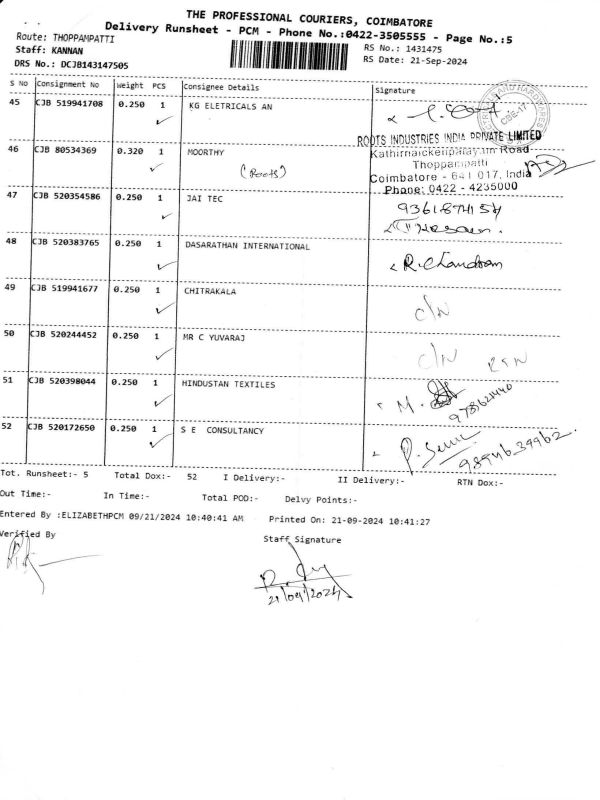 THE PROFESSIONAL COURIERS, COIMBATORE
Delivery Runsheet - PCM - Phone No.:0422-3505555 - Page No.:5
Route: THOPPAMPATTI
Staff: KANNAN
RS No.: 1431475
DRS No.: DCJB143147505
RS Date: 21-Sep-2024
S No Consignment No Weight PCS Consignee Details Signature
45 CJB 519941708 0.250 1 KG ELETRICALS AN
AND HARDWARES
CBE-17
ROOTS INDUSTRIES INDIA PRIVATE LIMITED
46 CJB 80534369 0.320 1 MOORTHY
(Roots)
Kathirnaickenpalayam Road
Thoppampatti
Coimbatore - 641 017, India
Phone: 0422 - 4235000
47 CJB 520354586 0.250 1 JAI TEC
48 CJB 520383765 0.250 1 DASARATHAN INTERNATIONAL
R. Chandram
49 CJB 519941677 0.250 1 CHITRAKALA
C/N
50 CJB 520244452 0.250 1 MR C YUVARAJ
C/N RTN
51 CJB 520398044 0.250 1 HINDUSTAN TEXTILES
M.
52 CJB 520172650 0.250 1 S E CONSULTANCY
9894639962
Tot. Runsheet:- 5 Total Dox:- 52 I Delivery:- II Delivery:- RTN Dox:-
Out Time:- In Time:- Total POD:- Delvy Points:-
Entered By :ELIZABETHPCM 09/21/2024 10:40:41 AM Printed On: 21-09-2024 10:41:27
Verified By Staff Signature
21/09/2024